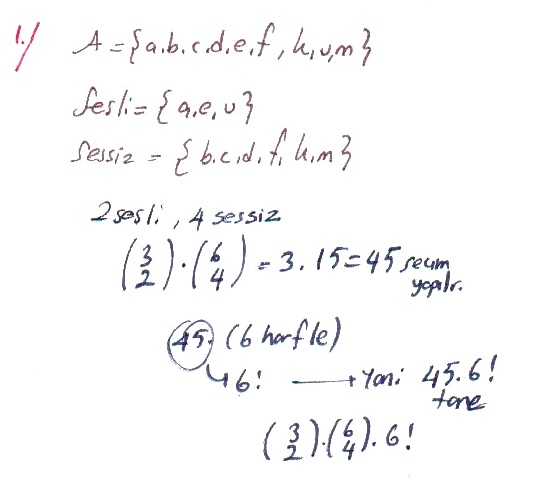 1./ A = {a.b.c.d.e.f, k,u,m}
Sesli = {a,e,u}
Sessiz = {b.c,d.f, k,m}
2 sesli, 4 sessiz
(3 2).(6 4) = 3.15=45 seçim
yapılır.
45. (6 harfle)
↳ 6! → Yani 45.6!
tane
(3 2).(6 4).6!